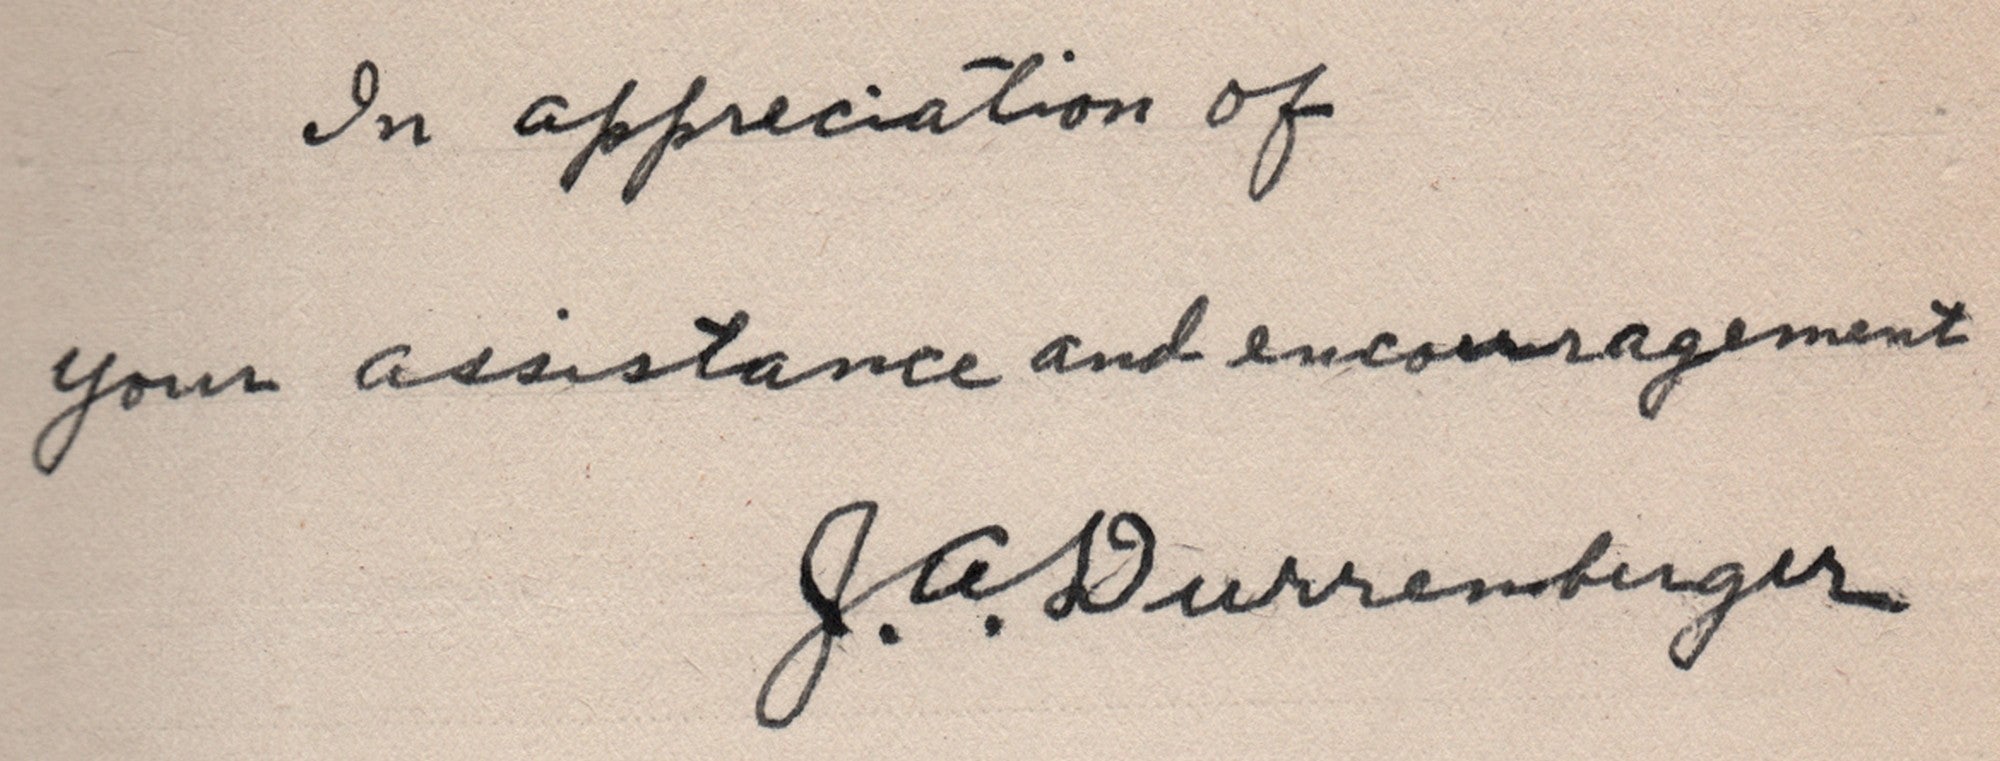 In appreciation of
your assistance and encouragement
J. A. Durrenberger